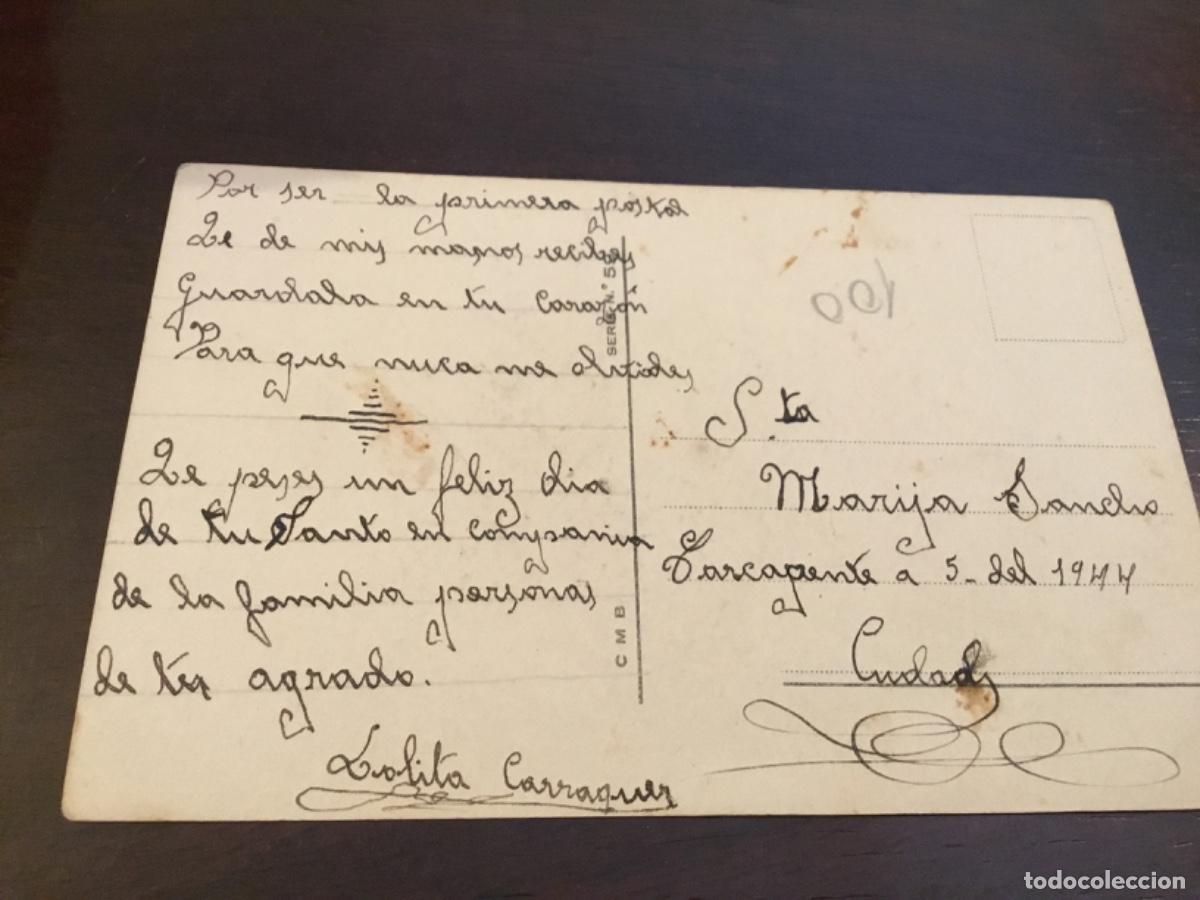 Por ser la primera postal
Qe de mis manos recibes
Guardala en tu corazón
Para que nuca me olvides
Qe peses un feliz dia
de tu Santo en compania
de la familia personas
de tu agrado.
Lolita Carraquer
SERIE N.º 5
C M B
100
S.ta
Marija Sancho
Carcagente a 5- del 1944
Cudad
todocoleccion